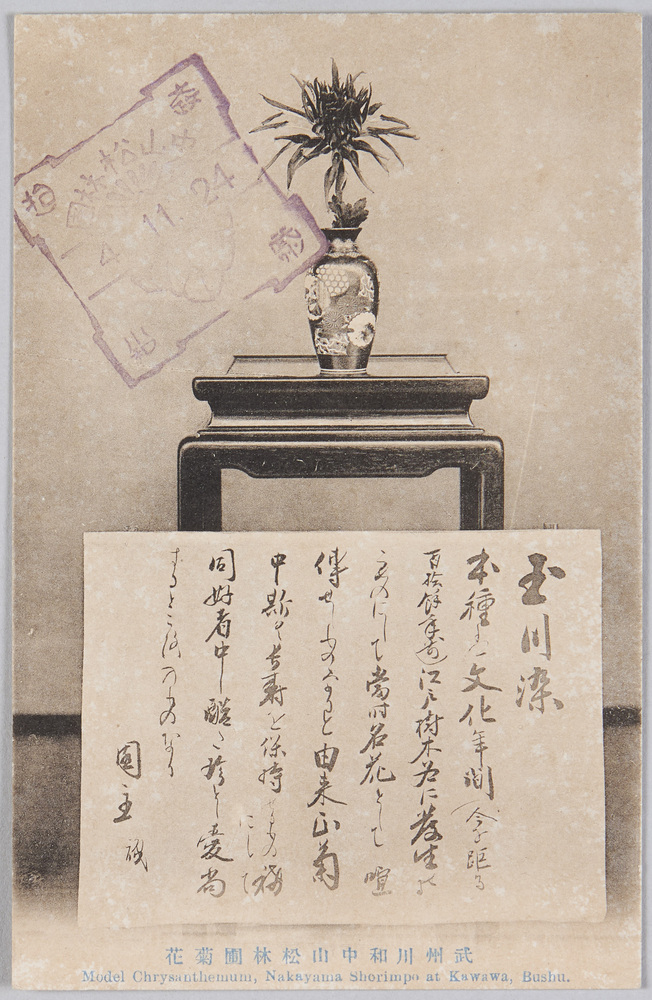 中山松林圃
4.11.24
玉川染
本種ハ文化年間(今ヲ距る
百拾餘年前)江戸樹木谷に發生せる
ものにして當時名花として喧
傳せしものなりと由来正菊
中斯く長寿を保持せるもの稀にして
同好者中珍と愛尚
するところのものなり
園主識
武州川和中山松林圃菊花
Model Chrysanthemum, Nakayama Shorimpo at Kawawa, Bushu.